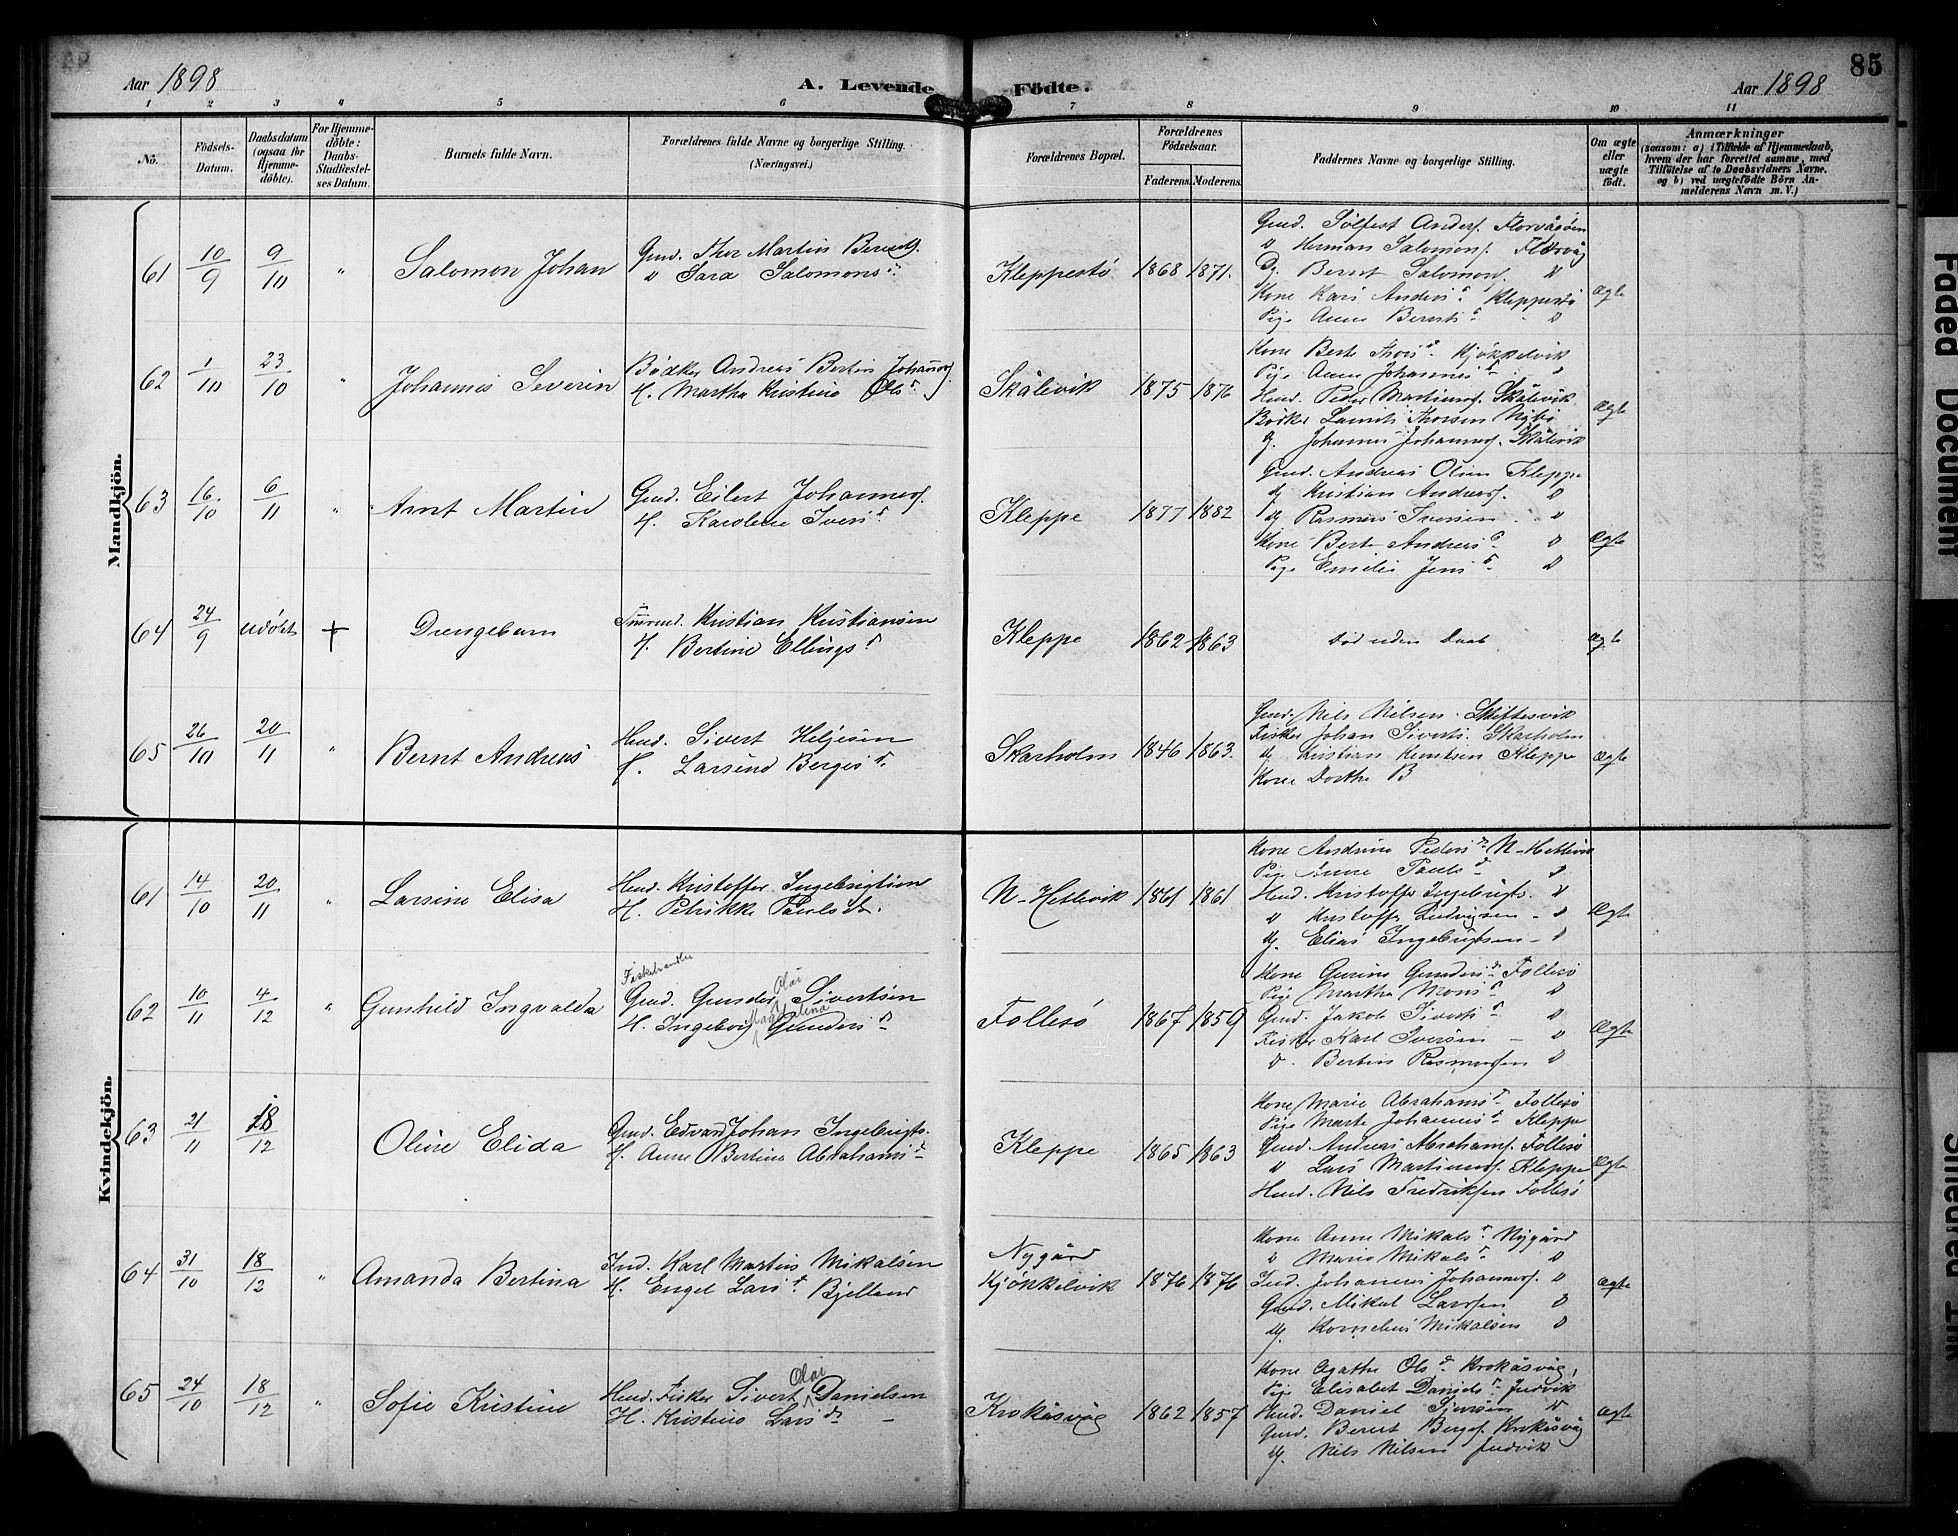 Aar 1898
A. Levende Födte.
85
Aar 1898
1 2 3 4 5 6 7 8 9 10 11
No.
Födsels-Datum.
Daabsdatum (ogsaa för Hjemme-döbte).
For Hjemme-döbte: Daabs-Stadfæstel-ses Datum.
Barnets fulde Navn.
Forældrenes fulde Navne og borgerlige Stilling. (Næringsvei.)
Forældrenes Bopæl.
Forældrenes Födselsaar.
Faderens. Moderens.
Faddernes Navne og borgerlige Stilling.
Om ægte eller uægte födt.
Anmærkninger
(saasom: a) i Tilfælde af Hjemmedaab,
hvem der har forrettet samme, med
Tilföielse af to Daabsvidners Navne.
og b) ved uægtefödte Börn An-
melderens Navn m. V.)
Mandkjön.
61 10/9 9/10 " Salomon Johan
Gmd. Thor Martin Berents.
" Sara Salomons d.
Kleppestö 1868 1871.
Gmd. Sölfest Anders. Florvåsöen
" Herman Salomons. Florvåg
Dj. Bernt Salomons. "
Kone Kari Anders d. Kleppestö
Pige Anna Bernts d. "
Ægte
62 1/10 23/10 " Johannes Severin
Bödker Andreas Bertin Johannes.
H. Martha Kristine Ols d.
Skålevik 1875 1876
Kone Berte Thors d. Kjökkelvik
Pige Anna Johannes d. "
Hmd. Peder Martinus. Skålevik
Bödker Laurits Thorsen Nybö
dj. Johannes Johannes. Skålevik
Ægte
63 16/10 6/11 " Arnt Martin
Gmd. Eilert Johannes.
H. Karoline Ivers d.
Kleppe 1877 1882
Gmd. Andreas Olsen Kleppe
dj Kristian Andreas. "
dj Rasmus Iversen "
Kone Berte Andreas d. "
Pige Emilie Jens d. "
Ægte
64 24/9 udöbt + Drengebarn
Tmrmd. Kristian Kristiansen
H. Bertine Ellings d.
Kleppe 1862 1863
Död uden Daab
Ægte
65 26/10 20/11 " Bernt Andreas
Hmd. Sivert Heljesen
H. Larsine Berges d.
Skarholm 1846 1863.
Gmd. Nils Nilsen Skiftesvik
Fisker Johan Siverts. Skarholm
dj Kristian Kleppe
Kone Dorthe B
Ægte
Kvindekjön.
61 14/10 20/11 " Larsine Elisa
Hmd. Kristoffer Ingebrigtsen
H. Petrikke Pauls d.
N-Hetlevik 1861 1861
Kone Andrine Peders d. N-Hetlevik
Pige Anne Pauls d. "
Hmd. Kristoffer Ingebrigts. "
" Kristoffer Ludvigsen "
dj. Elias Ingebrigtsen "
Ægte
62 10/11 4/12 " Gunhild Ingvalda
Fiskehandler
Gmd. Gunder Olai Sivertsen
H. Ingeborg Magdalina Gunders d.
Follesö 1867 1859
Kone Gurine Gunders d. Follesö
Pige Martha Mons d. "
Gmd. Jakob Siverts. "
Fisker Karl Iversen "
" Bertin Rasmussen "
Ægte
63 21/11 18/12 Oline Elida
Gmd. Edvard Johan Ingebrigts.
H. Anne Bertine Abrahams d.
Kleppe 1865 1863
Kone Marie Abrahams d. Follesö
Pige Marte Johannes d. Kleppe
Gmd Andreas Abrahams. Follesö
" Lars Martinus. Kleppe
Hmd. Nils Fredriksen Follesö
Ægte
64 31/10 18/12 " Amanda Bertina
Ind. Karl Martin Mikalsen
H. Engel Lars d. Bjelland
Nygård
Kjönkelvik 1876 1876
Kone Anne Mikals d. Nygård
" Marie Mikals d. "
Ind. Johannes Johannes. "
Gmd. Mikal Larssen "
dj. Kornelius Mikalsen "
Ægte
65 24/10 18/12 " Sofie Kristine
Hmd. Fisker Sivert Olai Danielsen
H. Kristine Lars d. -
Krokåsvåg 1862 1857
Kone Agathe Ols d. Krokåsvåg,
Pige Elisabet Daniels d. Judvik
Hmd. Daniel Sjursen "
Gmd. Bernt Berges. Krokåsvåg
dj. Nils Nilsen Judvik
Ægte
Faded Document
Smeared Ink